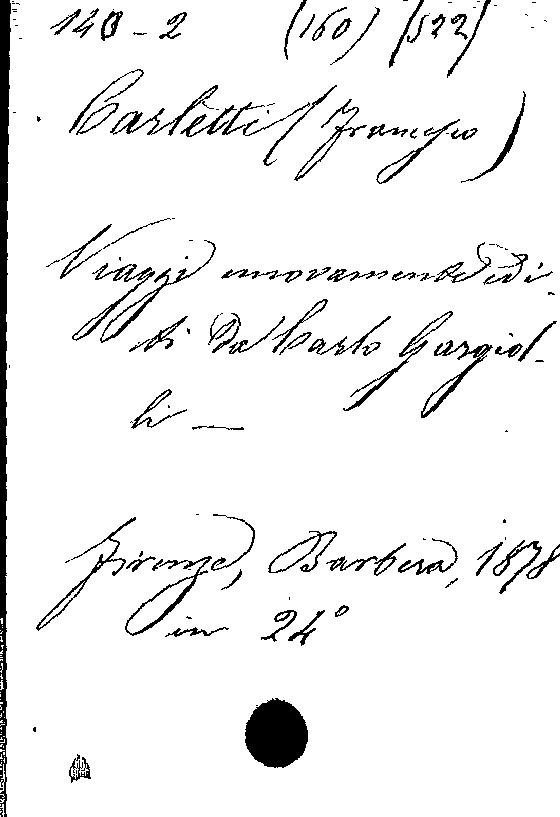 140-2 (160) (522)
Carletti (Francesco)
Viaggi nuovamente edi-
ti da Carlo Gargiol-
li —
Firenze, Barbera, 1878
in 24°